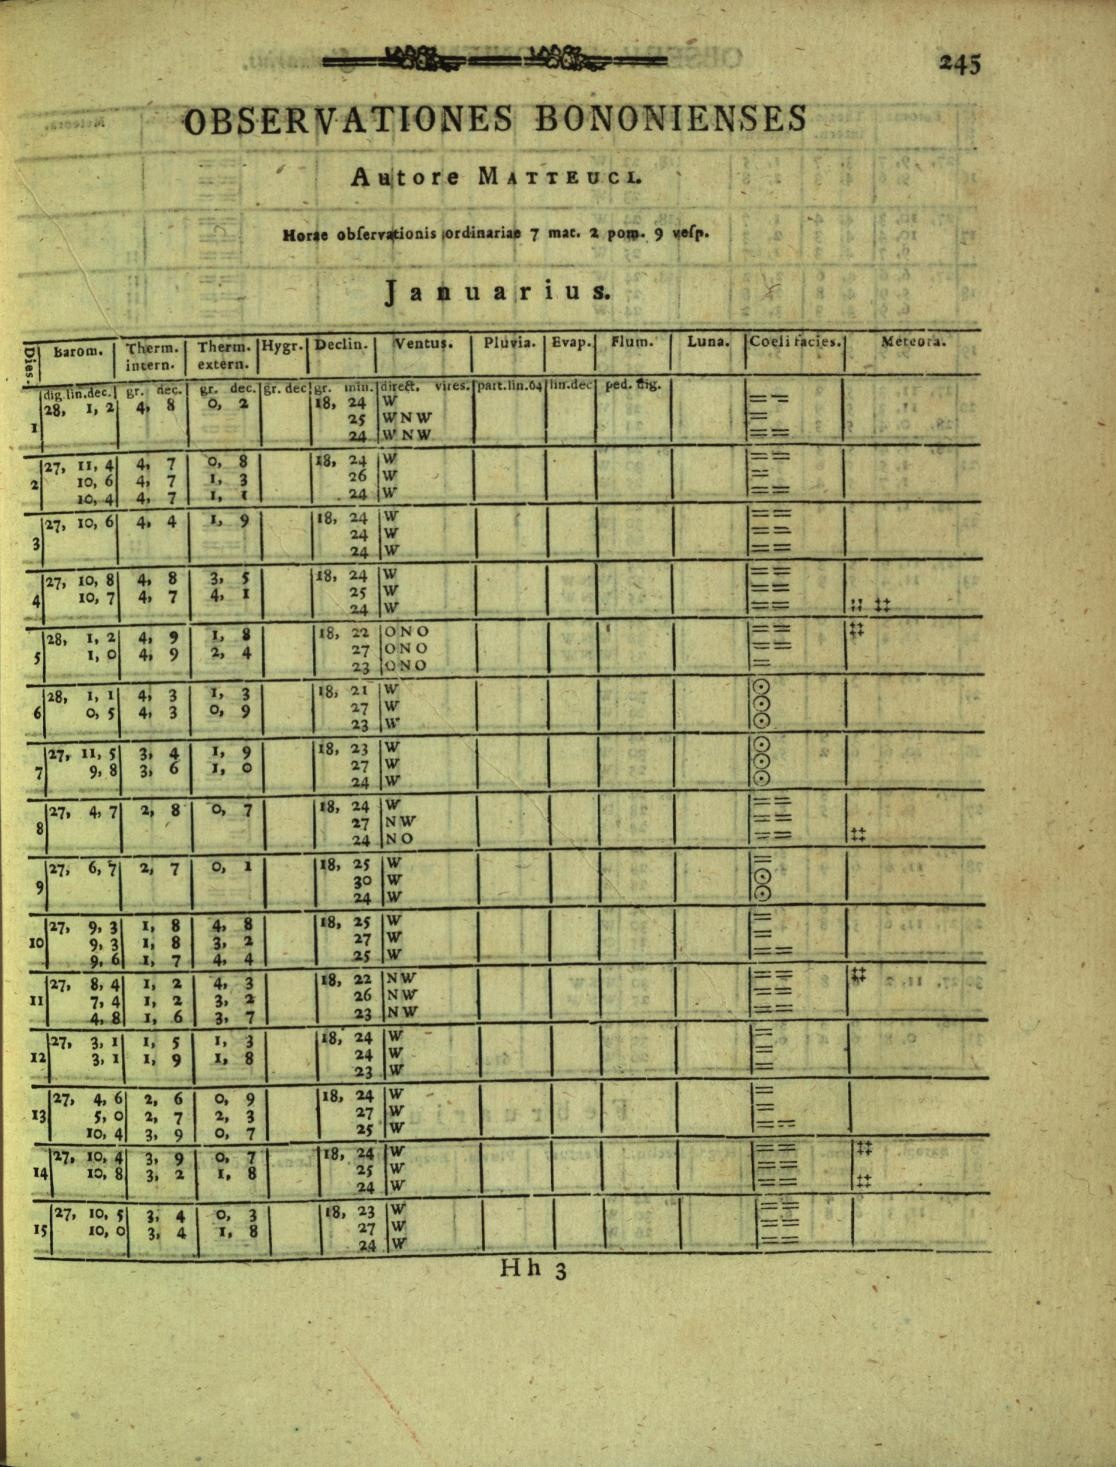 245
OBSERVATIONES BONONIENSES
Autore MATTEUCI.
Horae obſervationis ordinariae 7 mat. 2 pom. 9 veſp.
Januarius.
Dies. Barom. Therm. intern. Therm. extern. Hygr. Declin. Ventus. Pluvia. Evap. Flum. Luna. Coeli facies. Meteora.
dig.lin.dec. gr. dec. gr. dec. gr. dec gr. min. direct. vires. part.lin.64 lin.dec ped. dig.
1 28, 1, 2 4, 8 0, 2 18, 24 W = =
25 WNW =
24 WNW = =
2 27, 11, 4 4, 7 0, 8 18, 24 W = =
10, 6 4, 7 1, 3 26 W =
10, 4 4, 7 1, 1 24 W = =
3 27, 10, 6 4, 4 1, 9 18, 24 W = =
24 W = =
24 W = =
4 27, 10, 8 4, 8 3, 5 18, 24 W = =
10, 7 4, 7 4, 1 25 W = =
24 W = = :: ‡‡
5 28, 1, 2 4, 9 1, 8 18, 22 ONO = = ‡‡
1, 0 4, 9 2, 4 27 ONO = =
23 ONO =
6 28, 1, 1 4, 3 1, 3 18, 21 W ☉
0, 5 4, 3 0, 9 27 W ☉
23 W ☉
7 27, 11, 5 3, 4 1, 9 18, 23 W ☉
9, 8 3, 6 1, 0 27 W ☉
24 W ☉
8 27, 4, 7 2, 8 0, 7 18, 24 W = =
27 NW = =
24 NO = = ‡‡
9 27, 6, 7 2, 7 0, 1 18, 25 W =
30 W ☉
24 W ☉
10 27, 9, 3 1, 8 4, 8 18, 25 W =
9, 3 1, 8 3, 2 27 W =
9, 6 1, 7 4, 4 25 W = =
11 27, 8, 4 1, 2 4, 3 18, 22 NW = = ‡‡
7, 4 1, 2 3, 2 26 NW = =
4, 8 1, 6 3, 7 23 NW = =
12 27, 3, 1 1, 5 1, 3 18, 24 W =
3, 1 1, 9 1, 8 24 W =
23 W =
13 27, 4, 6 2, 6 0, 9 18, 24 W =
5, 0 2, 7 2, 3 27 W =
10, 4 3, 9 0, 7 25 W = =
14 27, 10, 4 3, 9 0, 7 18, 24 W = = ‡‡
10, 8 3, 2 1, 8 25 W = =
24 W = = ‡‡
15 27, 10, 5 3, 4 0, 3 18, 23 W = =
10, 0 3, 4 1, 8 27 W = =
24 W = =
Hh 3